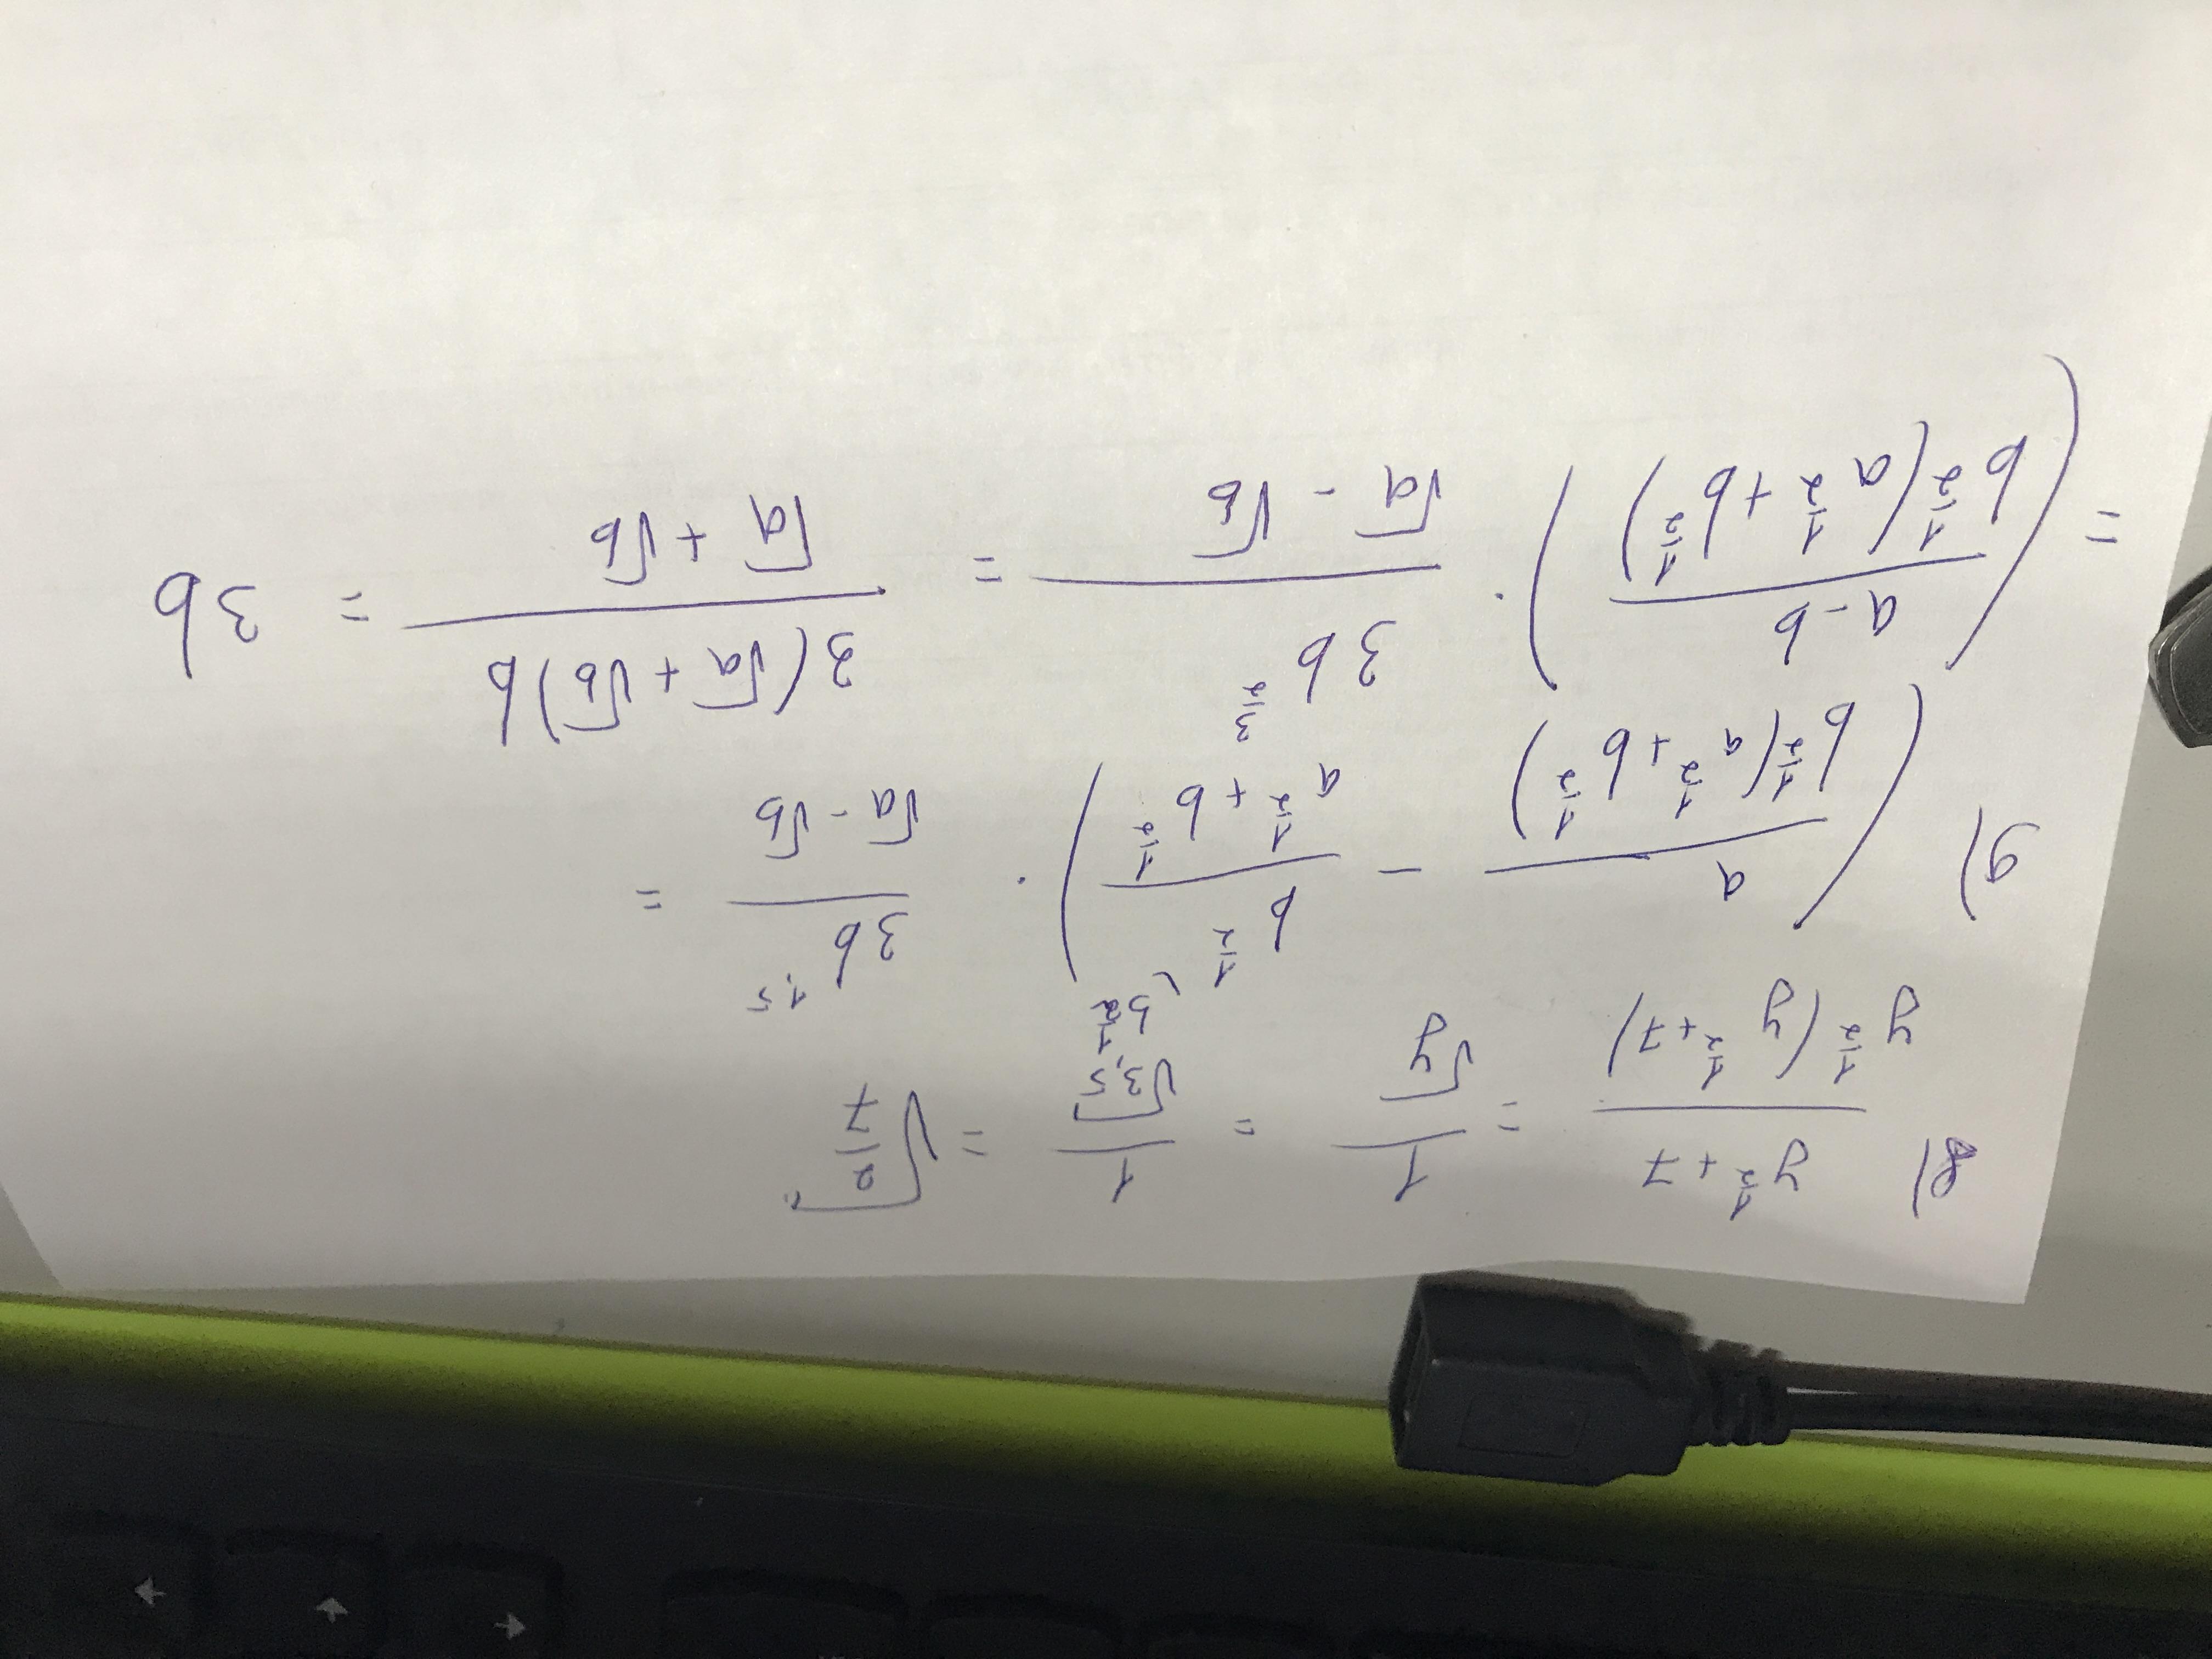 8) \frac{y^{\frac{1}{2}} + 7}{y^{\frac{1}{2}}(y^{\frac{1}{2}} + 7)} = \frac{1}{\sqrt{y}} = \frac{1}{\sqrt{3,5}} = \sqrt{\frac{2}{7}}
9) \left( \frac{a}{b^{\frac{1}{2}}(a^{\frac{1}{2}} + b^{\frac{1}{2}})} - \frac{b^{\frac{1}{2}}}{a^{\frac{1}{2}} + b^{\frac{1}{2}}} \right)^{(b^{\frac{1}{2}}} \cdot \frac{3b^{1,5}}{\sqrt{a} - \sqrt{b}} =
= \left( \frac{a - b}{b^{\frac{1}{2}}(a^{\frac{1}{2}} + b^{\frac{1}{2}})} \right) \cdot \frac{3b^{\frac{3}{2}}}{\sqrt{a} - \sqrt{b}} = \frac{3(\sqrt{a} + \sqrt{b})b}{\sqrt{a} + \sqrt{b}} = 3b